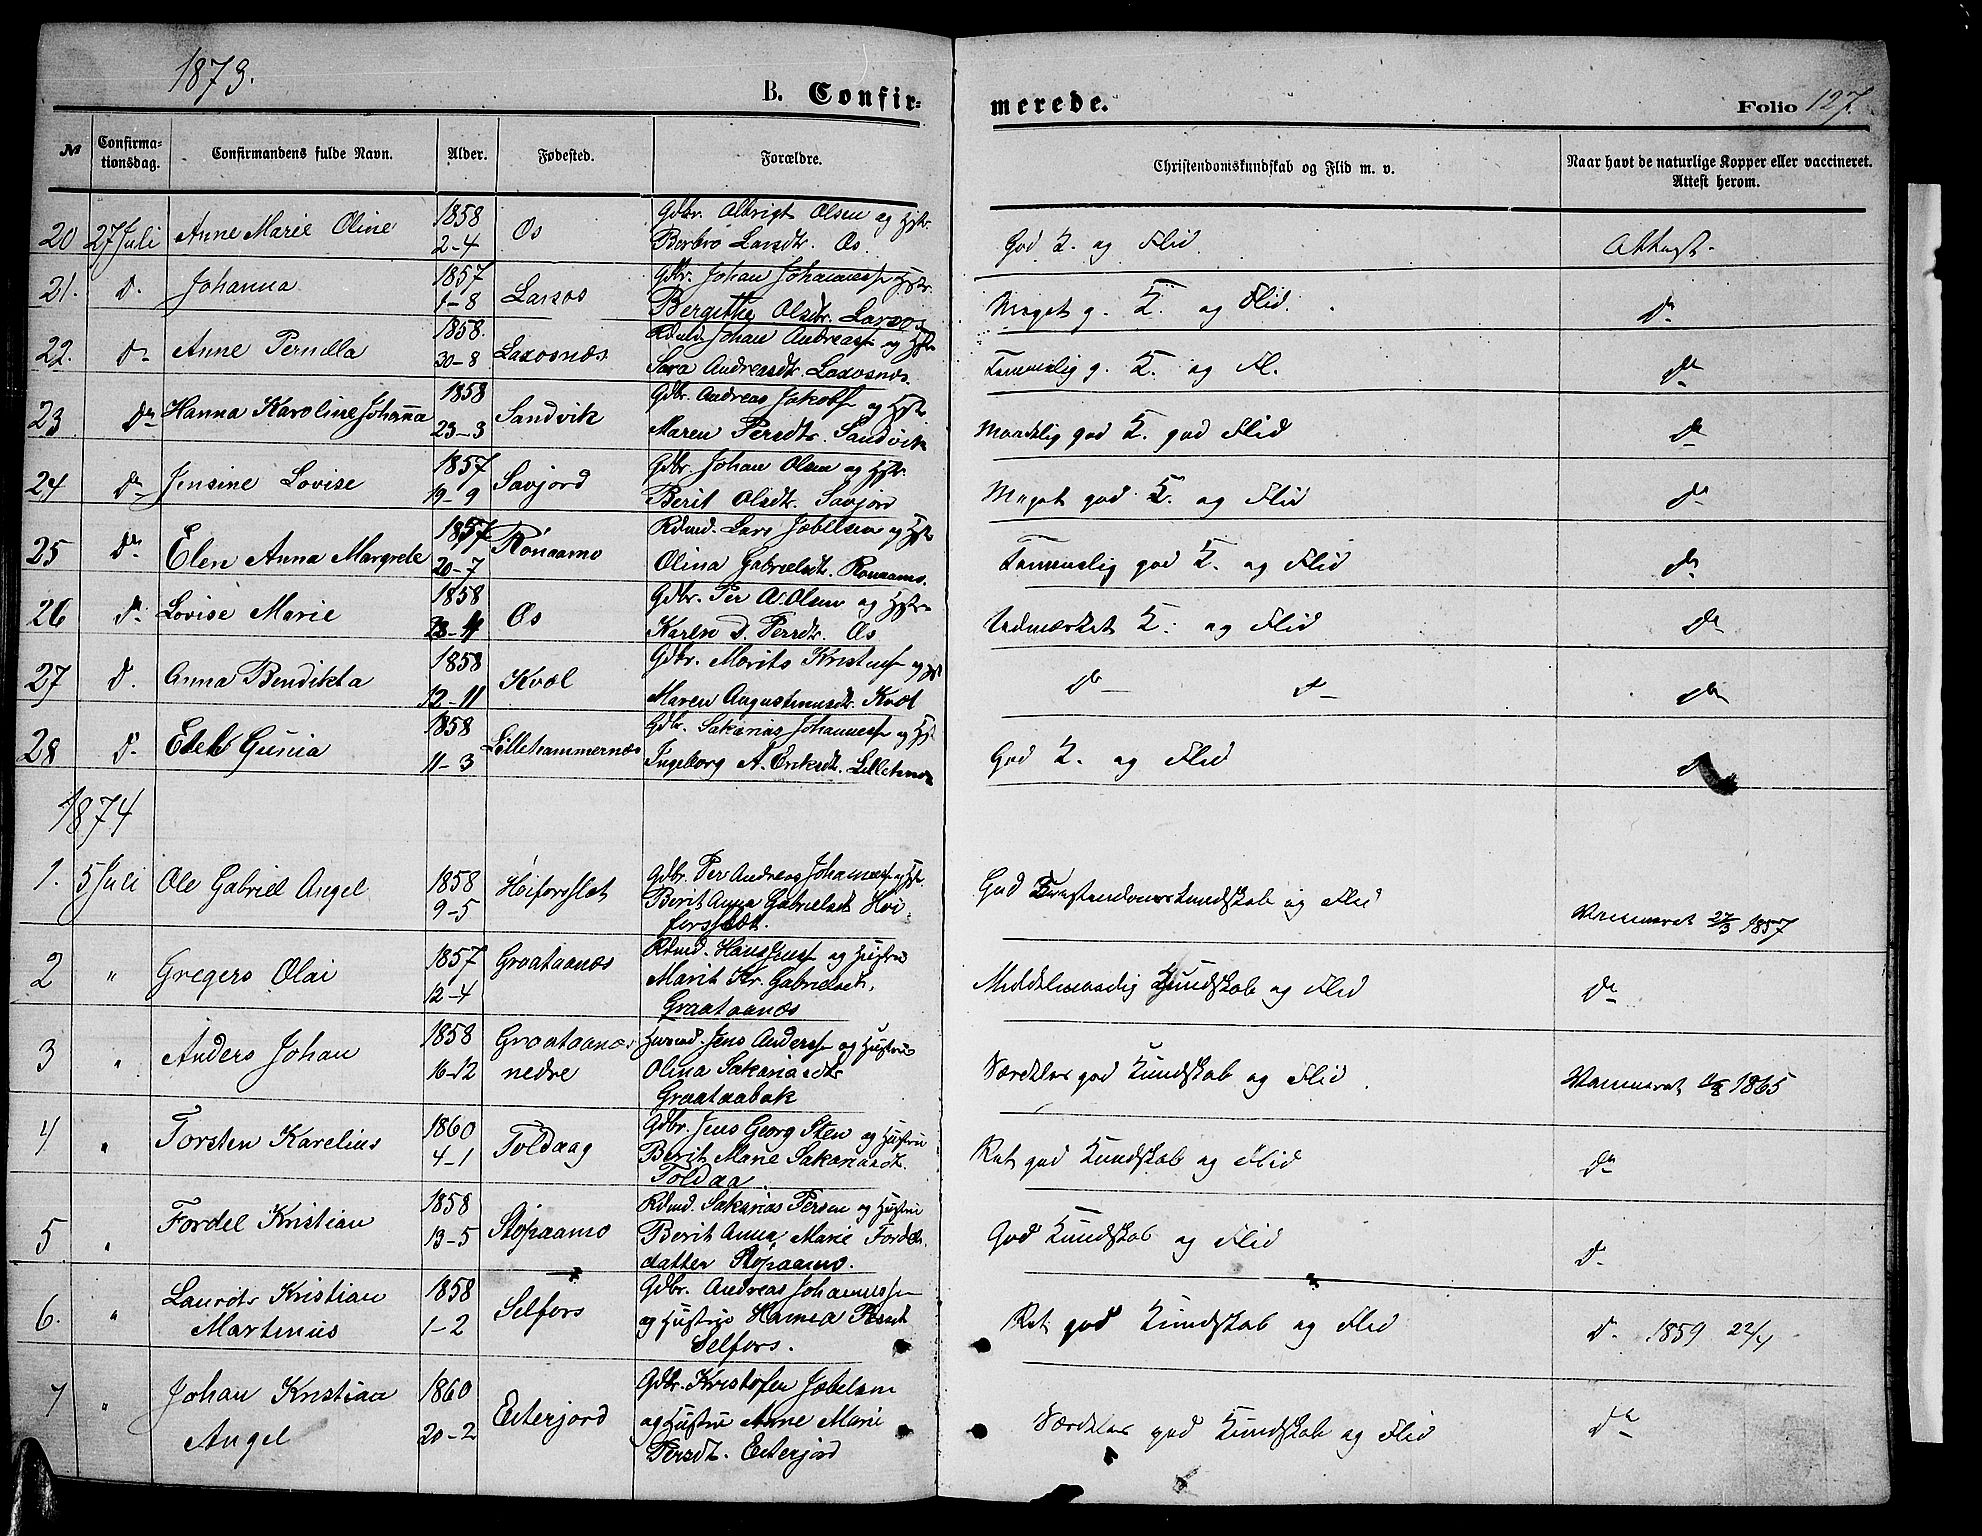 1873.
B. Confirmerede.
Folio 127.
№ Confirmationsdag. Confirmandens fulde Navn. Alder. Fødested. Forældre. Christendomskundskab og Flid m. v. Naar havt de naturlige Kopper eller vaccineret. Attest herom.
20 27 Juli Anne Marie Oline 1858 2-4 Os Gdbr. Albrigt Olsen og Hstr. Berbrø Larsdtr. Os God K. og Flid Attest.
21. d. Johanna 1857 1-8 Laxos Gdbr. Johan Johanness og Hstr. Bergitha Olsdtr. Laxos Meget g. K. og Flid. do
22. do Anne Pernella 1858. 30-8 Laxosnæs Johan Andreass og Hstr Sara Andreasdtr. Laxosnæs. Temmelig g. K. og Fl. do
23 do Hanna Karoline Johanna 1858 23-3 Sandvik Gdbr. Andreas Jakobs og Hstr Maren Persdtr. Sandvik Maadelig god K. god Flid do
24 do Jensine Lovise 1857 19-9 Savjord Gdbr. Johan Olsen og Hstr. Berit Olsdtr. Savjord Meget god K. og Flid do
25 do Elen Anna Margrete 1857 20-7 Rønaamo Rdmd. Lars Jæbelsen og Hstr Olina Gabrielsdt. Rønaamo. Temmelig god K. og Flid do
26 d. Lovise Marie 1858 Os Gdbr. Per A. Olsen og Hstr Karen D. Persdtr. Os Udmærket K. og Flid do
27 d. Anna Bendikta 1858 12-11 Kvæl Gdbr. Morits Kristens og Hstr Maren Augustinusdt. Kvæl do do do
28 d. Edel Gunia 1858 11-3 Lillehammernæs Gdbr. Sakarias Johanness og Hstr Ingeborg A. Eriksdtr. God K. og Flid d
1874
1. 5 Juli Ole Gabriel Angel 1858 9-5 Høiforsslet Gdbr. Per Andreas Johanness og Hstr. Berit Anna Gabrielsdt Høiforsslet. God Kristendomskundskab og Flid Vaccineret 27/3 1857
2 " Gregers Olai 1857 12-4 Graataanæs Rdmd. Hans Jens og Hustru Marit Kr. Gabrielsdt. Graataanæs Middelmaadig Kundskab og Flid do
3 " Anders Johan 1858 16-12 Graataanæs nedre Jens Anderss og Hustru Olina Sakariasdtr Graataabak Særdeles god Kundskab og Flid. Vaccineret 1865
4 " Torsten Karelius 1860 4-1 Toldaag Gdbr. Jens Georg Sten og Hustru Berit Marie Sakariasdt. Toldaa. Ret god Kundskab og Flid do
5 " Fordel Kristian 1858 13-5 Stopaamo Rdmd. Sakarias Persen og Hustru Berit Anna Marie Fordelsdatter Stopaamo. God Kundskab og Flid d.
6. " Laurits Kristian Martinus 1858 1-2 Selfors Gdbr. Andreas Johanness og Hustru Hanna Selfors. Ret god Kundskab og Flid d. 1859 22/4
7 " Johan Kristian Angel 1860 20-2 Eiterjord Gdbr. Kristofer Jæbelsen og Hustru Anne Marie Persdt. Eiterjord Særdeles god Kundskab og Flid do